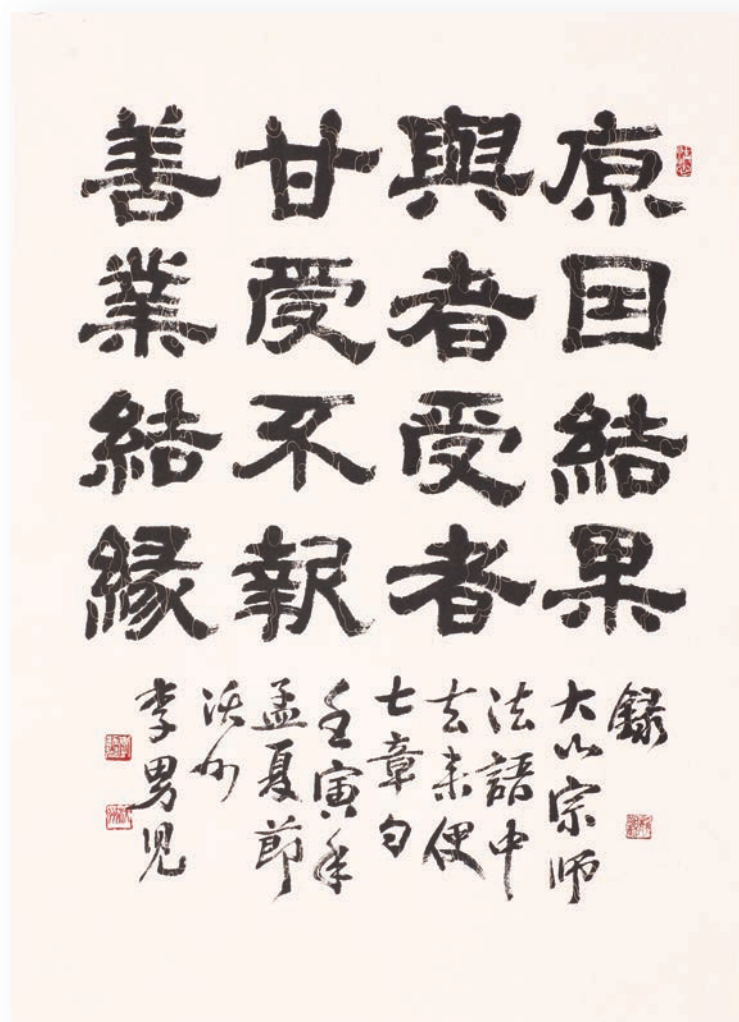 原因結果
與者受者
甘受不報
善業結緣
錄
大山宗師
法語中
去来便
七章句
壬寅年
孟夏節
沃州
李男児